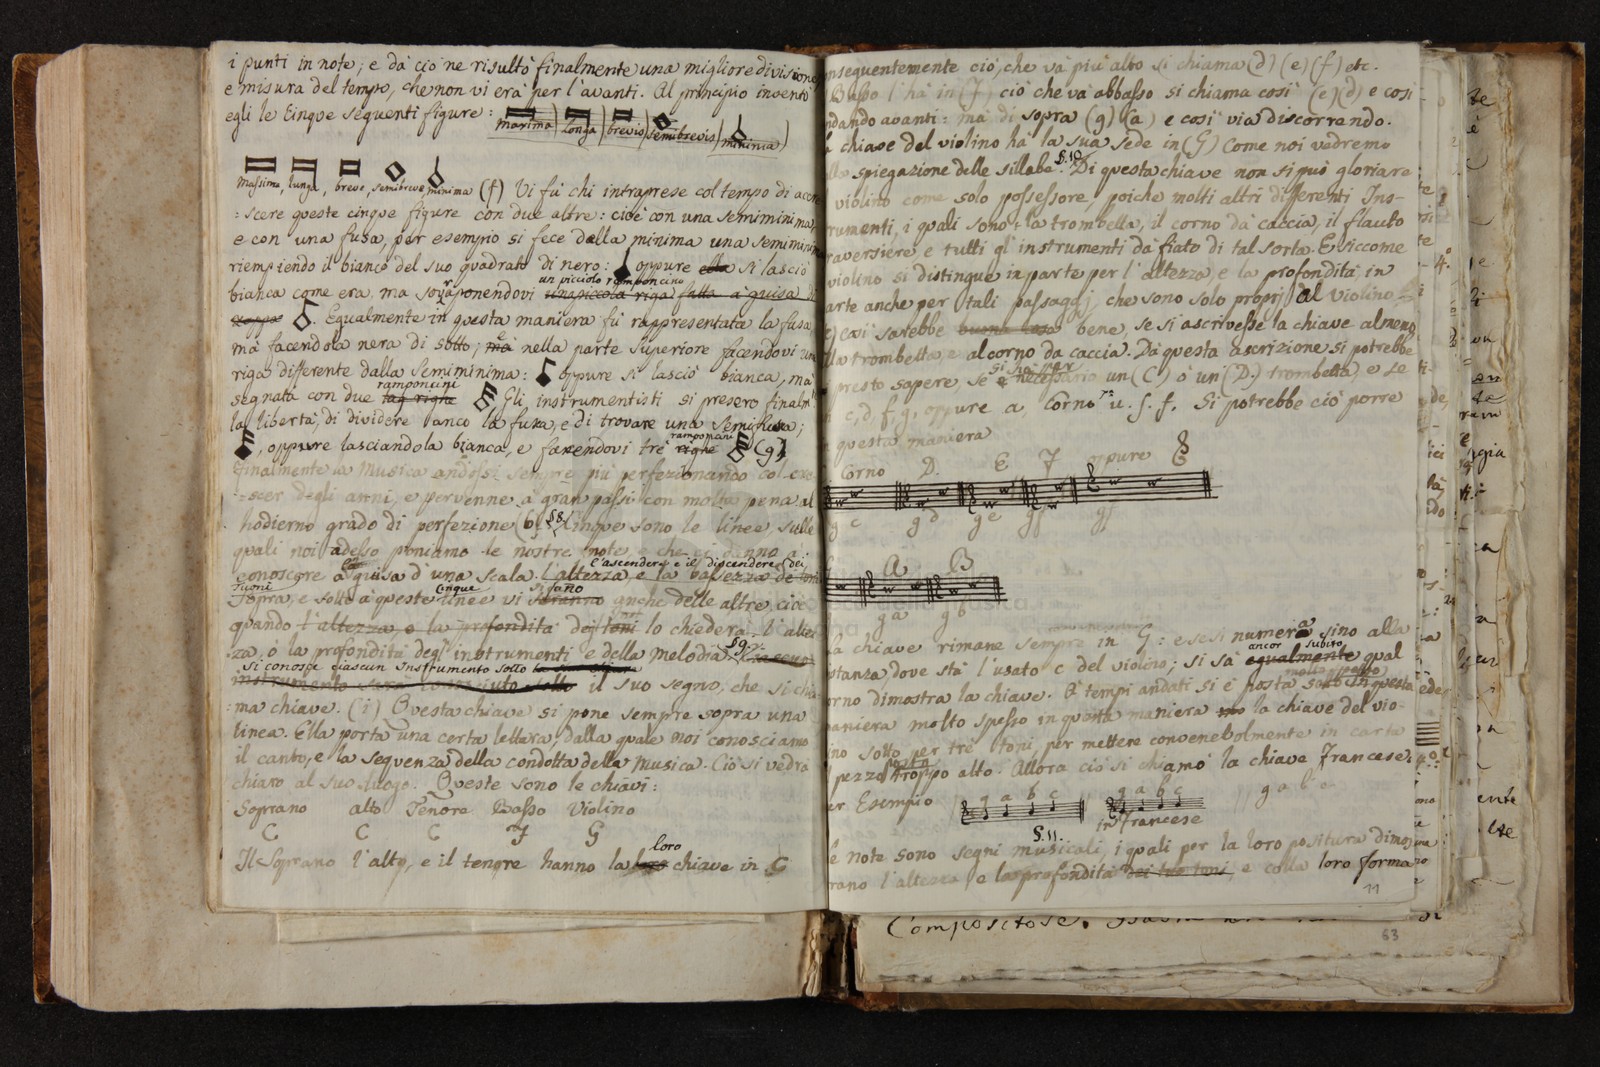 i punti in note; e da ciò ne risultò finalmente una migliore divisione
e misura del tempo, che non vi era per l'avanti. Al principio inventò
egli le Cinque seguenti figure:
maxima longa brevis semibrevis minima
Massima, lunga, breve, semibreve minima (f) Vi fù chi intraprese col tempo di accre
scere queste cinque figure con due altre: cioè con una semiminima,
e con una fusa, per esempio si fece dalla minima una semiminima
riempiendo il bianco del suo quadrato di nero: oppure ella si lasciò
un picciolo ramponcino
bianca come era, ma sovraponendovi una piccola riga fatta a guisa di
zappa. Egualmente in questa maniera fù rappresentata la fusa,
mà facendola nera di sotto; mà nella parte superiore facendovi una
riga differente dalla Semiminima: oppure si lasciò bianca, mà
ramponcini
segnata con due righe Gli instrumentisti si presero finalm.te
la libertà, di dividere anco la fusa, e di trovare una Semifusa;
ramponcini
, oppure lasciandola bianca, e facendovi tre righe (g)
finalmente la Musica andossi sempre più perfezionando col cre
scer degli anni, e pervenne a gran passi con molta pena al
hodierno grado di perfezione (b). §8. Cinque sono le linee, sulle
quali noi adesso poniamo le nostre note, e che ci danno a
l'ascendere e il discendere dei
conoscere a guisa d'una scala l'altezza e la bassezza de toni
Tuoni Cinque si fano
Sopra, e sotto a queste linee vi saranno anche delle altre ciò
quando l'altezza, e la profondità dei toni lo chiederà. l'altez
za, ò la profondità degl'instrumenti e della Melodia. §9. Ciascuno
si conosce ciascun Instrumento sotto
instrumento sarà conosciuto sotto il suo segno, che si chia
ma chiave. (i) Questa chiave si pone sempre sopra una
linea. Ella porta una certa lettera, dalla quale noi conosciamo
il canto, e la sequenza della condotta della Musica. Ciò si vedrà
chiaro al suo luogo. Queste sono le chiavi:
Soprano alto Tenore Basso Violino
C C C F G
loro
Il Soprano l'alto, e il tenore hanno la chiave in C
nseguentemente ciò, che và più alto si chiama (d) (e) (f) etc.
Basso l'hà in (F) ciò che va abbasso si chiama così (e)(d) e così
ndando avanti: ma di sopra (g) (a) e così via discorrendo.
chiave del violino hà la sua sede in (G) Come noi vedremo
spiegazione delle sillabe. §.10. Di questa chiave non si può gloriare
violino come solo possessore, poiche molti altri differenti Ins-
rumenti, i quali sono: la trombetta, il corno dà caccia, il flauto
raversiere e tutti gl'instrumenti dà fiato di tal sorta. E siccome
violino si distingue in parte per l'altezza, e la profondità in
arte anche per tali passaggj, che sono solo proprj al violino
così sarebbe buona cosa bene, se si ascrivesse la chiave almeno
lla trombetta, e al corno da caccia. Dà questa ascrizione si potrebbe
presto sapere se è necessario un (C) ò un (D.) trombetta, e se
c, d, f, g, oppure a, Corno u. s. f. Si potrebbe ciò porre
questa maniera
Corno D. E F oppure G
g c g d g e g f g f
A B
g a g b
a chiave rimane sempre in G: e se si numera sino alla
ancor subito
stanza dove stà l'usato c del violino; si sà egualmente qual
molto spesso
orno dimostra la chiave. A' tempi andati si è posta sotto in questa
aniera molto spesso in questa maniera la chiave del vio-
ino sotto per trè toni, per mettere convenevolmente in carta
pezzo troppo alto. Allora ciò si chiamò la chiave Francese.
er Esempio g a b c g a b c g a b c
in Francese
§.11.
e note sono segni musicali, i quali per la loro positura dimos
rano l'altezza, e la profondità dei toni, e colla loro forma
11
Compositore.
63